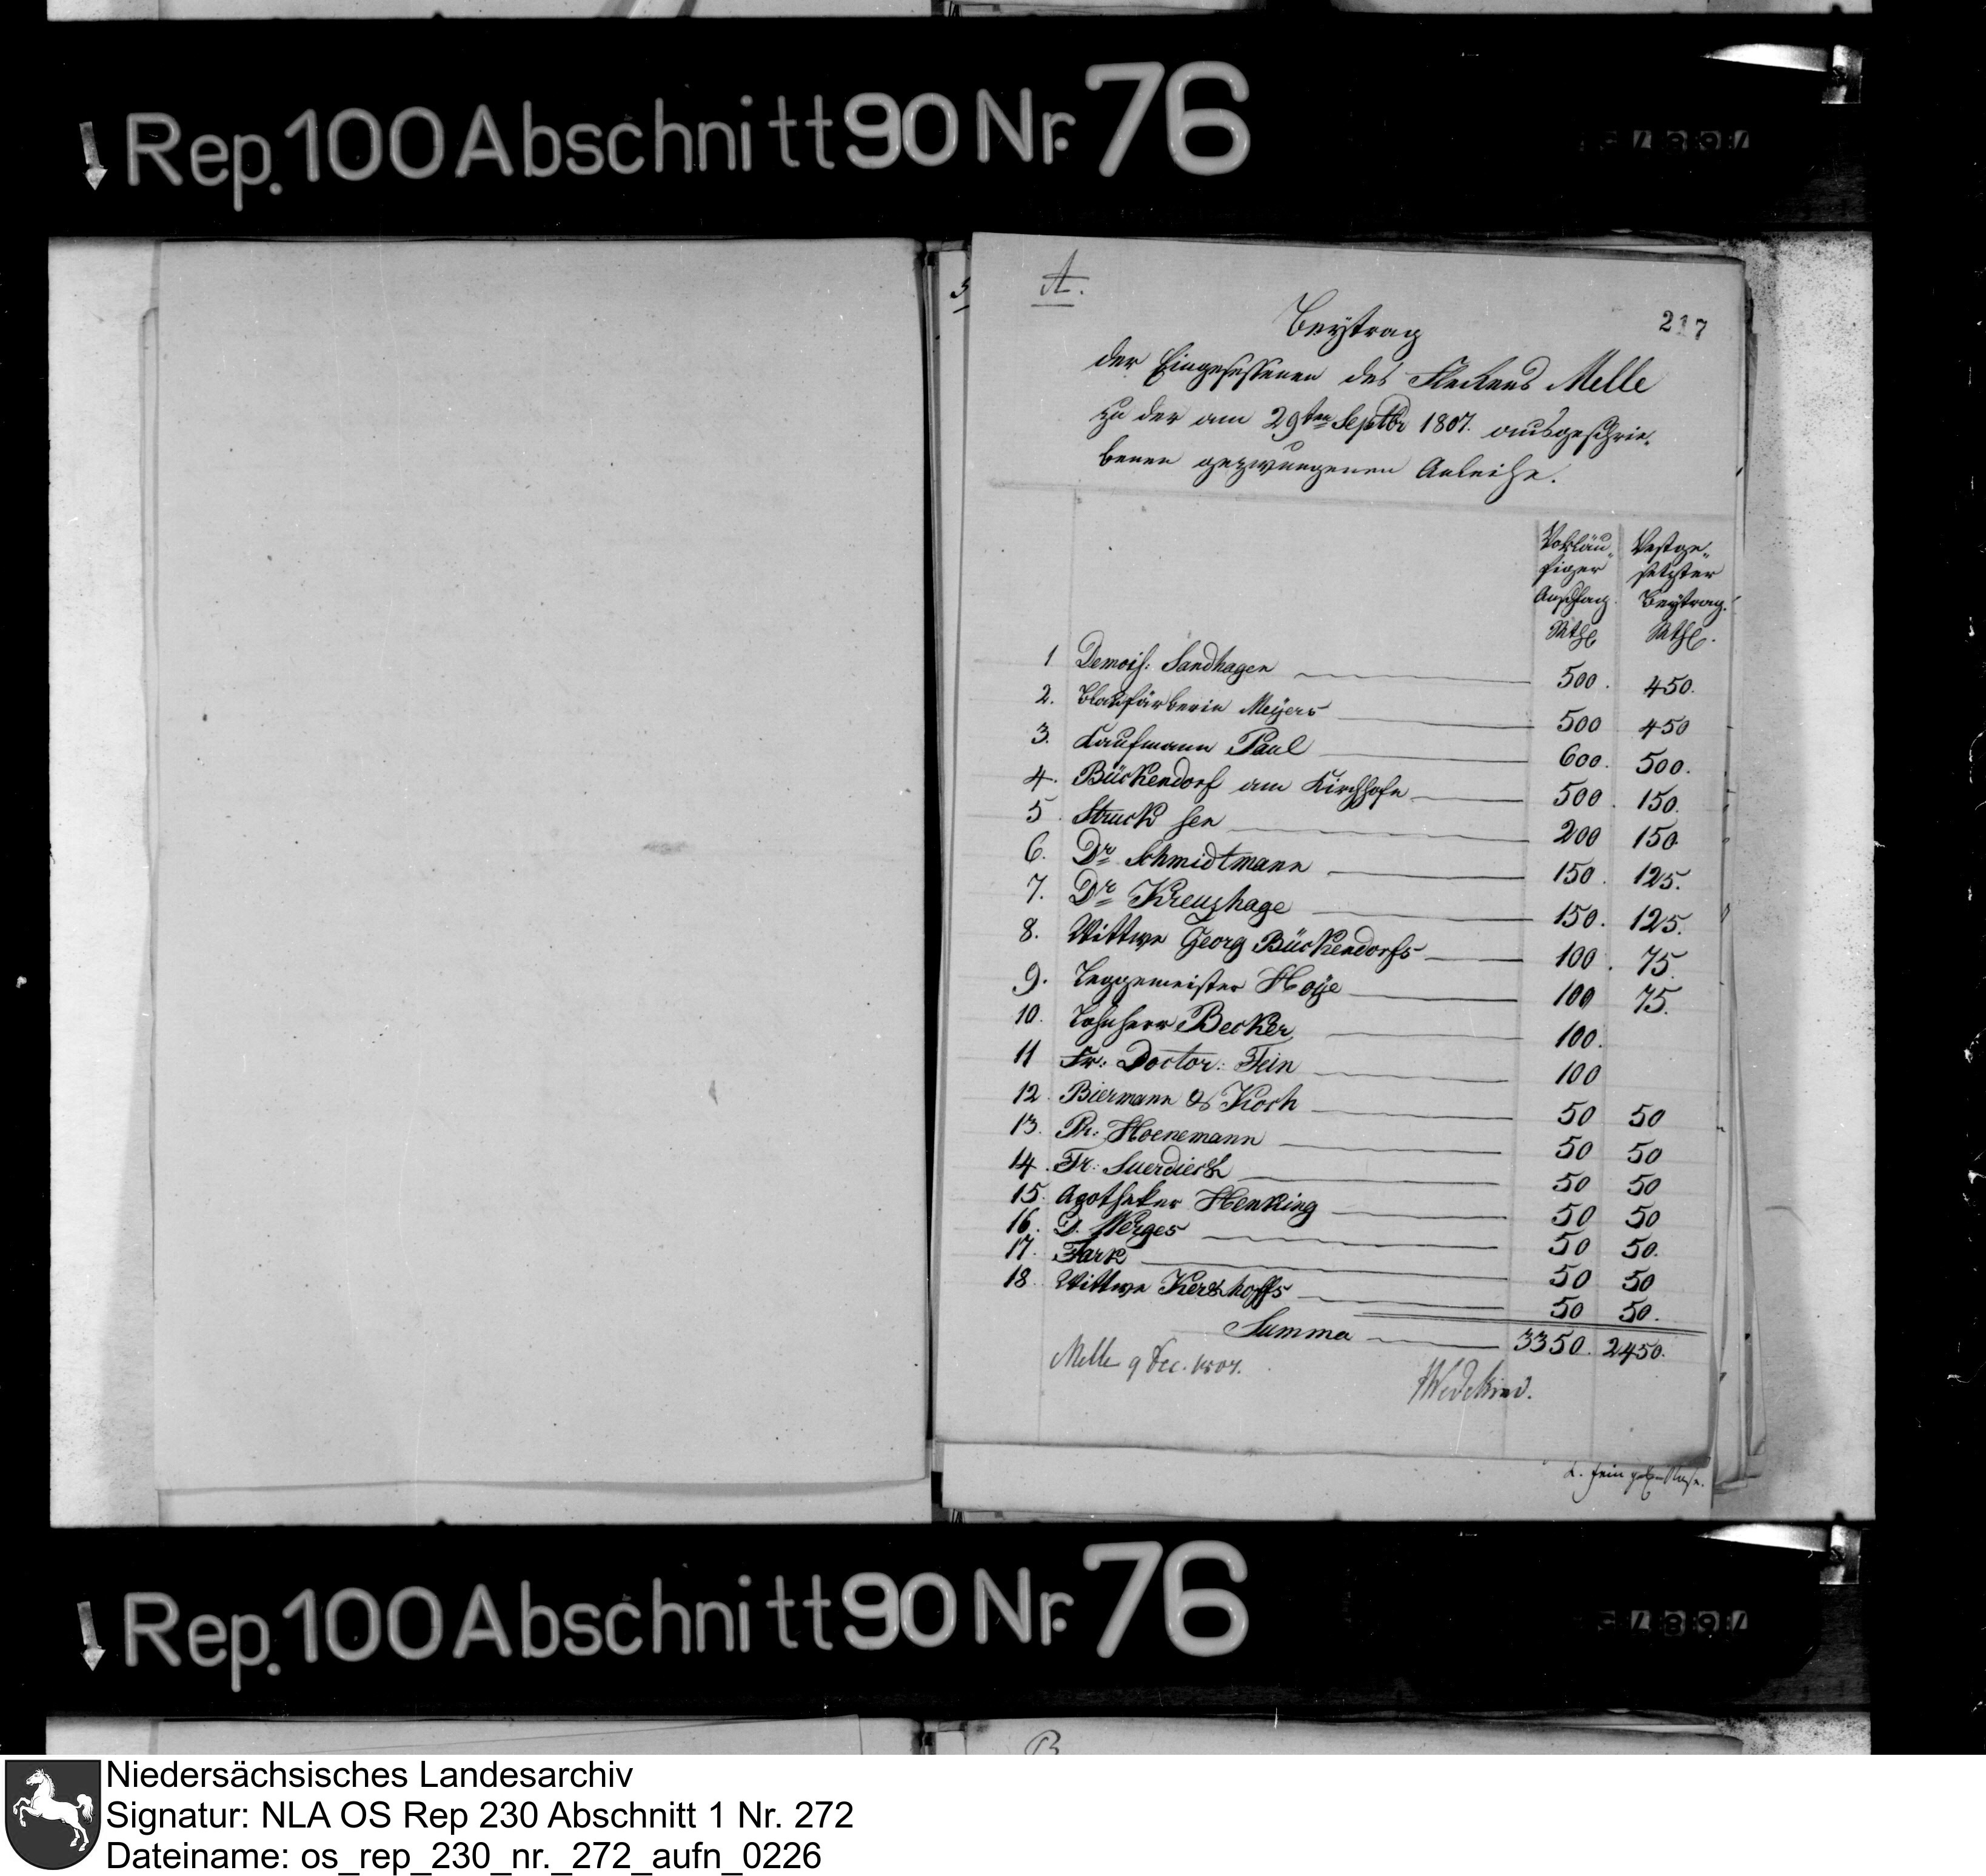 Rep. 100 Abschnitt 90 Nr. 76
A.
217
Beÿtrag
der Eingesessenen des Fleckens Melle
zu der am 29ten Septbr 1807. ausgeschrie-
benen gezwungenen Anleihe.
Vorläu„ Vestge„
figer setzter
Anschlag Beÿtrag.
Rthl Rthl.
1 Demois: Sandhagen 500. 450.
2. Blaufärberin Meÿers 500 450
3. Kaufmann Paul 600. 500.
4. Bückendorf am Kirchhofe 500. 150.
5 Struck sen 200 150.
6. Dr Schmidtmann 150. 125.
7. Dr Kreushage 150. 125.
8. Wittwe Georg Bückendorfs 100. 75.
9. Leggemeister Hoÿe 100 75.
10. Lohnherr Becker 100.
11 Fr: Doctor: Fein 100
12. Biermann & Koch 50 50
13. Hoenemann 50 50
14. Fr: Suerdieck 50 50
15. Apotheker Henking 50 50
16. D. Werges 50 50.
17. Fark 50 50
18. Wittwe Kerkhoffs 50 50.
Summa 3350. 2450.
Melle 9 Dec. 1807.
Wedekind.
Rep. 100 Abschnitt 90 Nr. 76
B
Niedersächsisches Landesarchiv
Signatur: NLA OS Rep 230 Abschnitt 1 Nr. 272
Dateiname: os_rep_230_nr._272_aufn_0226